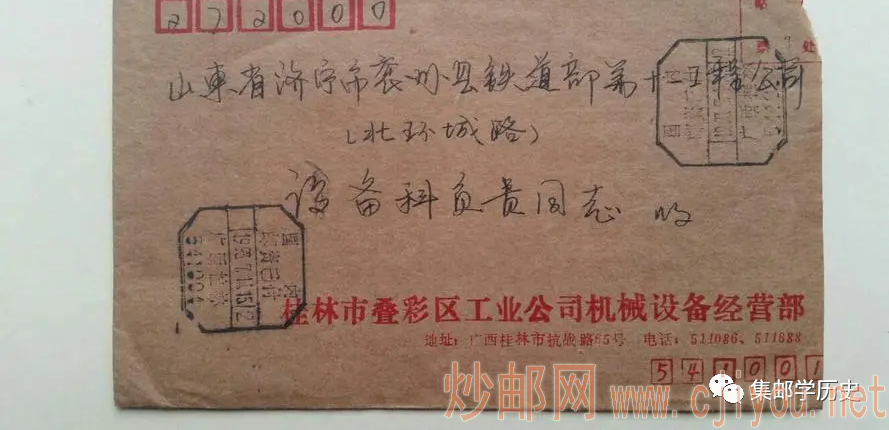 272000
山東省济宁市兖州县铁道部第十二工程公司
（北环城路）
设备科负贵同志 收
国内
邮资已付
广西桂林
541004
桂林市叠彩区工业公司机械设备经营部
地址：广西桂林市抗战路65号 电话：511086、511688
541001
炒邮网 www.cjiyou.net
集邮学历史